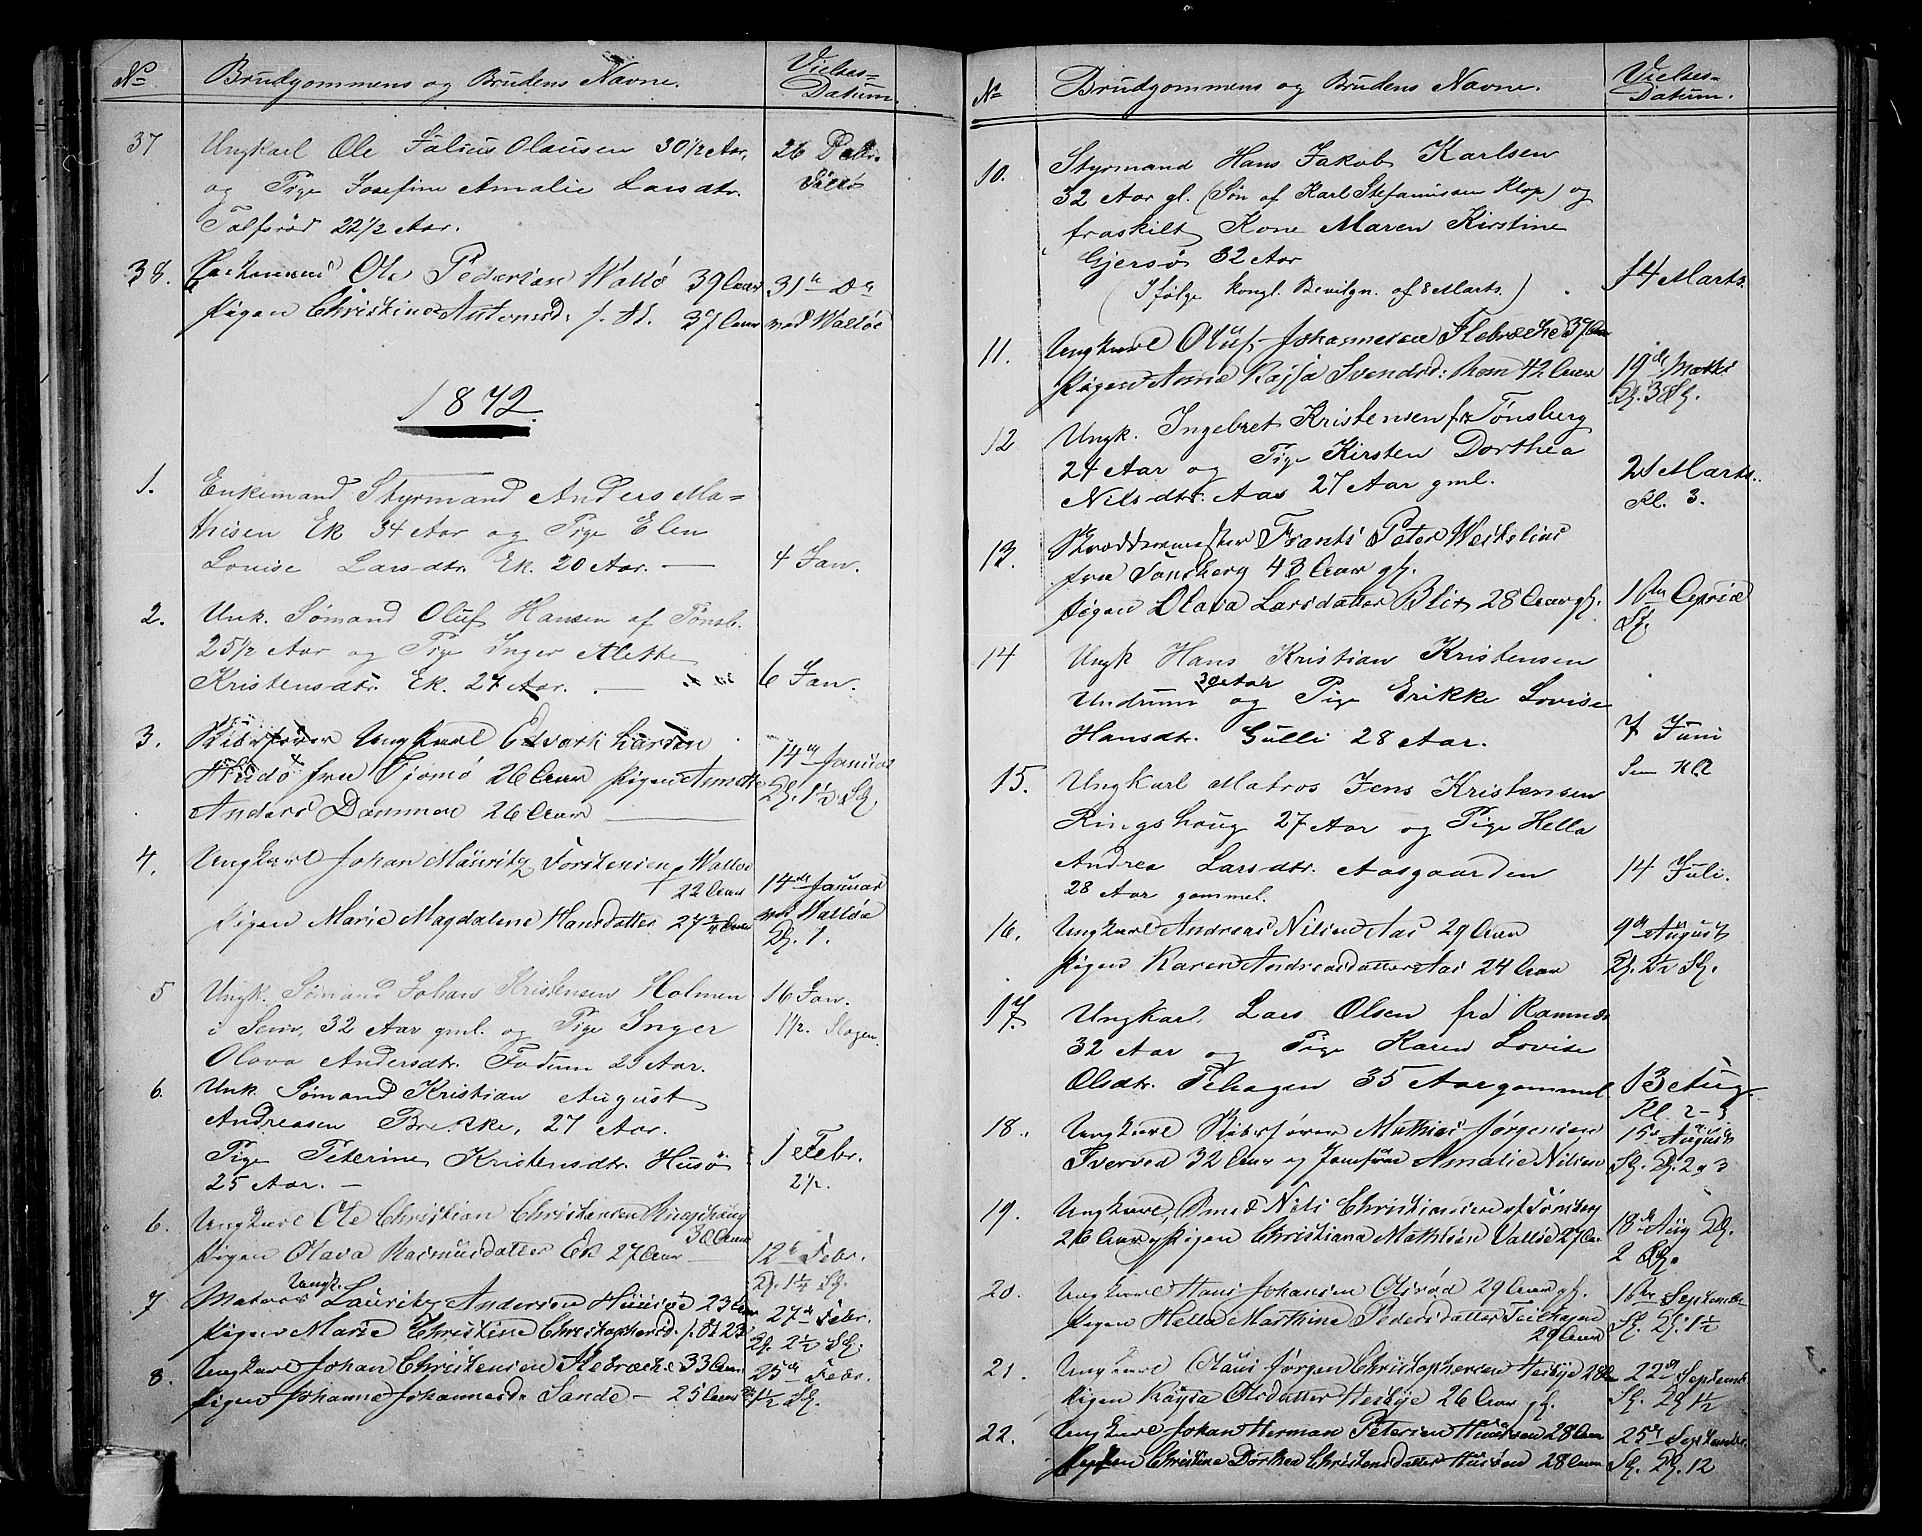 No Brudgommens og Brudens Navne. Vielses=
Datum.
37 Ungkarl Ole Julius Olausen 30 1/2 Aar, 26 Debr.
og Pige Josefine Amalie Larsdtr.
22 1/2 Aar.
38. Ole Pedersen Walløe 39 Aar 31te
Pigen Christine Antonsd: 37 Aar ved Walløe
1872.
1. Enkemand Styrmand Anders Ma=
thisen Ek 34 Aar og Pige Elen
Lovise Larsdtr. Ek. 20 Aar. — 4 Jan.
2. Unk. Sømand Oluf Hansen af Tønsb.
25 1/2 Aar og Pige Inger Alethe
Kristensdtr. Ek. 27 Aar. — 6 Jan.
3. Skibsfører Ungkarl Edvart Larsen
fra Tjømø 26 Aar Pigen 14de Januar
Anders Dammen 26 Aar Kl. 1 1/2 Sl.
4. Ungkarl Johan Mauritz Torstensen Walløe
22 Aar 14de Januar
Pigen Marie Magdalene Hansdatter 27 Aar ved Walløe
Kl. 1.
5 Ungk. Sømand Johan Kristensen Holmen 16 Jan.
i Sem, 32 Aar gml. og Pige Inger 1 1/2. Slagen.
Olava Andersdtr. Fodum 25 Aar.
6. Unk. Sømand Kristian August
Andreasen Brække, 27 Aar.
Pige Peterine Kristensdtr. Husø 1 Febr.
25 Aar. — 2 1/2.
6. Ungkarl Ole Christian Christensen Ringshaug
30 Aar
Pigen Olava Rasmusdatter Ek 27 Aar 12te Febr.
Kl. 1 1/2 Sl.
Ungk.
7 Matros Lauritz Andersen Husøe 23 Aar 27de Febr.
Pigen Marie Christine Christophersd. Kl. 2 1/2 Sl.
8. Ungkarl Johan Christensen Flebræche 33 Aar 25de Febr.
Pigen Johanne Johannesd: Sande — 25 Aar Kl. 1 1/2 Sl.
No Brudgommens og Brudens Navne. Vielses=
Datum.
10. Styrmand Hans Jakob Karlsen
32 Aar gl. (Søn af Karl Stefanussen Klop) og
fraskilt Kone Maren Kirstine
Gjersø 32 Aar 14 Marts.
(Ifølge kongl. Bevilgn. af 8 Marts.)
11. Ungkarl Oluf Johannesen Flebræche 37 Aar
Pigen Anne Kajsa Svendsd: Rom 42 Aar 19de Marts
Kl. 3 Sl.
12 Ungk. Ingebret Kristensen fr. Tønsberg
24 Aar og Pige Kirsten Dorthea 21 Marts.
Nilsdtr. Aas 27 Aar gml. Kl. 3.
13. Skræddermester Frants Peter Westelius
fra Tønsberg 43 Aar gl.
Pigen Olava Larsdatter Blix 28 Aar gl. 1ste April
Sl.
14 Ungk Hans Kristian Kristensen
30 Aar
Undrum og Pige Erikke Lovise
Hansdtr. Gulli 28 Aar. 7 Juni
Sem
15. Ungkarl Matros Jens Kristensen
Ringshoug 27 Aar og Pige Hella
Andrea Larsdtr. Aasgaarden 14 Juli.
28 Aar gammel.
16. Ungkarl Andreas Nilsen Aas 29 Aar 9de August
Pigen Karen Andreasdatter Aas 24 Aar Kl. 2 1/2 Sl.
17. Ungkarl Lars Olsen fra Ramnæs
32 Aar og Pige Karen Lovise
Olsdtr. Tehagen 35 Aar gammel 13 Aug.
Kl. 2–3
18. Ungkarl Skibsfører Mathias Jørgensen 15de August
Sverved 32 Aar og Jomfrue Amalie Nilsen Sl. Kl. 2 a 3
19. Ungkarl, Smed Nils Christiansen af Tønsberg
26 Aar Pigen Christiana Mathisen Valløe 27 Aar 18de Aug Kl.
2 Sl.
20. Ungkarl Hans Johansen Olsrød 29 Aar gl. 1ste September
Pigen Hella Marthine Pedersdatter Teiehagen Sl. Kl. 1 1/2
29 Aar
21. Ungkarl Olaus Jørgen Christophersen Hesbye 28 Aar 22de September
Pigen Kaysa Olsdatter Hesbye 26 Aar gl. Sl. Kl 1 1/2
22. Ungkarl Johan Herman Petersen Husøen 28 Aar 25de September
Pigen Christine Dorthea Christensdatter Husøen 28 Aar Sl. Kl. 12